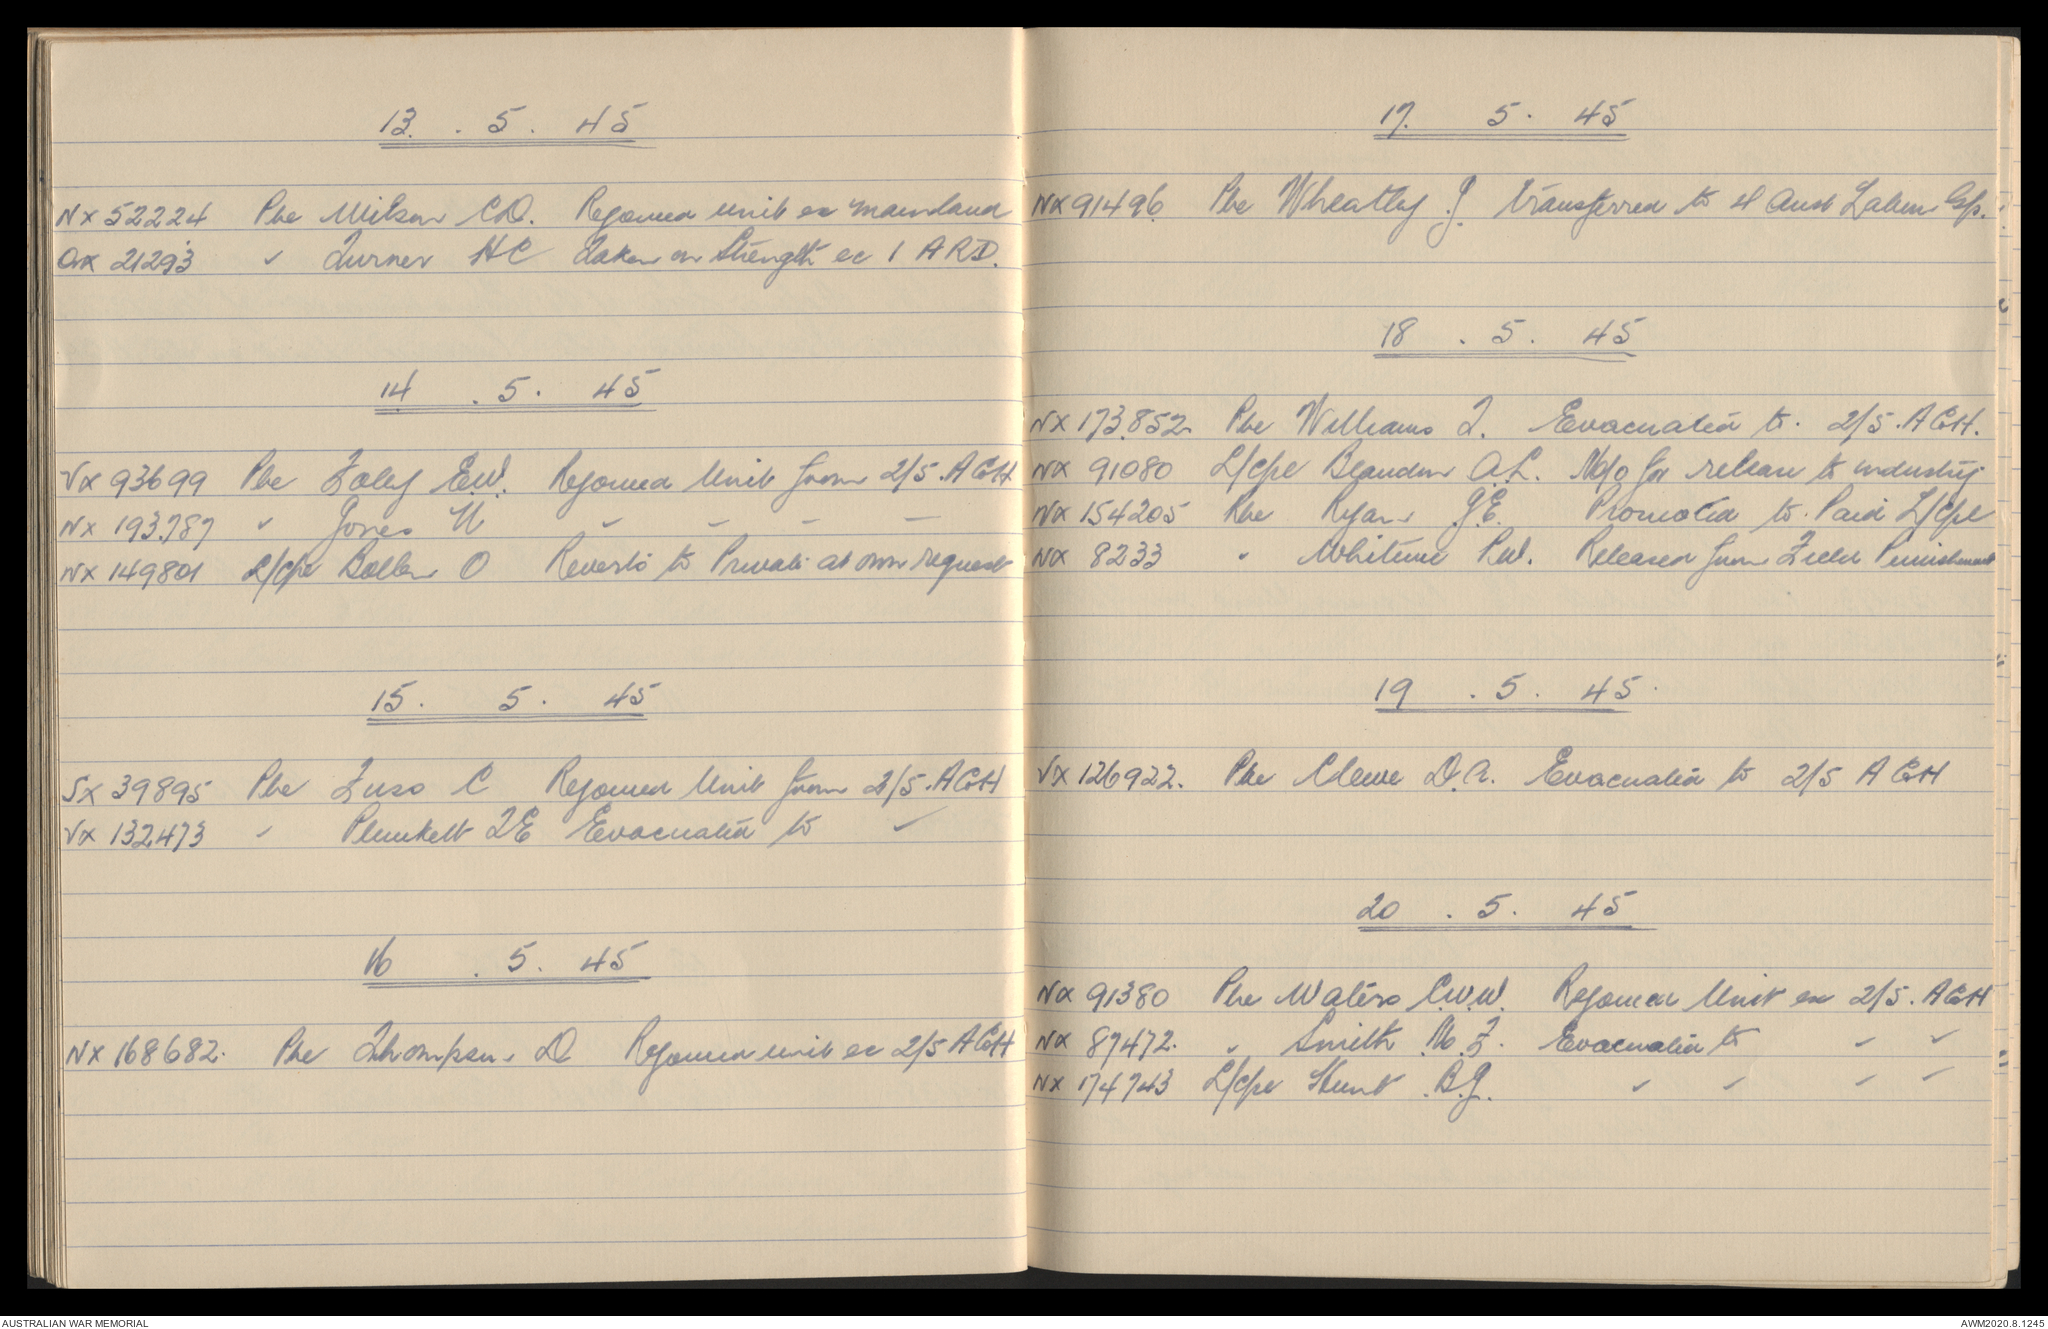 13. . 5 . 45
NX 52224 Pte Wilson C.D. Rejoined unit ex mainland
QX 21293 " Turner H C Taken on Strength ex 1 ARD.
14 . 5 . 45
VX 93699 Pte Foley E.W. Rejoined Unit from 2/5. AGH
NX 193787 " Jones N " " " "
NX 149801 L/Cpl Bollen O Reverts to Private at own request
15 . 5 . 45
SX 39895 Pte Fuss C Rejoined Unit from 2/5. AGH
VX 132473 " Plunkett T E Evacuated to "
16 . 5 . 45
NX 168682. Pte Thompson D Rejoined unit ex 2/5 AGH
17. 5 . 45
NX 91496 Pte Wheatley J. transferred to 4 Aust Labour Coy.
18 . 5 . 45
NX 173852 Pte Williams T. Evacuated to. 2/5. AGH.
NX 91080 L/Cpl A.L. M/O for release to industry
NX 154205 Pte Ryan J.E. Promoted to Paid L/Cpl
NX 8233 " Whitene P.W. Released from Field Punishment
19 . 5 . 45.
VX 126922. Pte Clewe D.A. Evacuated to 2/5 AGH
20 . 5 . 45
NX 91380 Pte Waters C.W.W. Rejoined Unit ex 2/5. AGH
NX 87472. " Smith M. F. Evacuated to " "
NX 174743 L/Cpl Hunt B.J. " " " "
AUSTRALIAN WAR MEMORIAL
AWM2020.8.1245